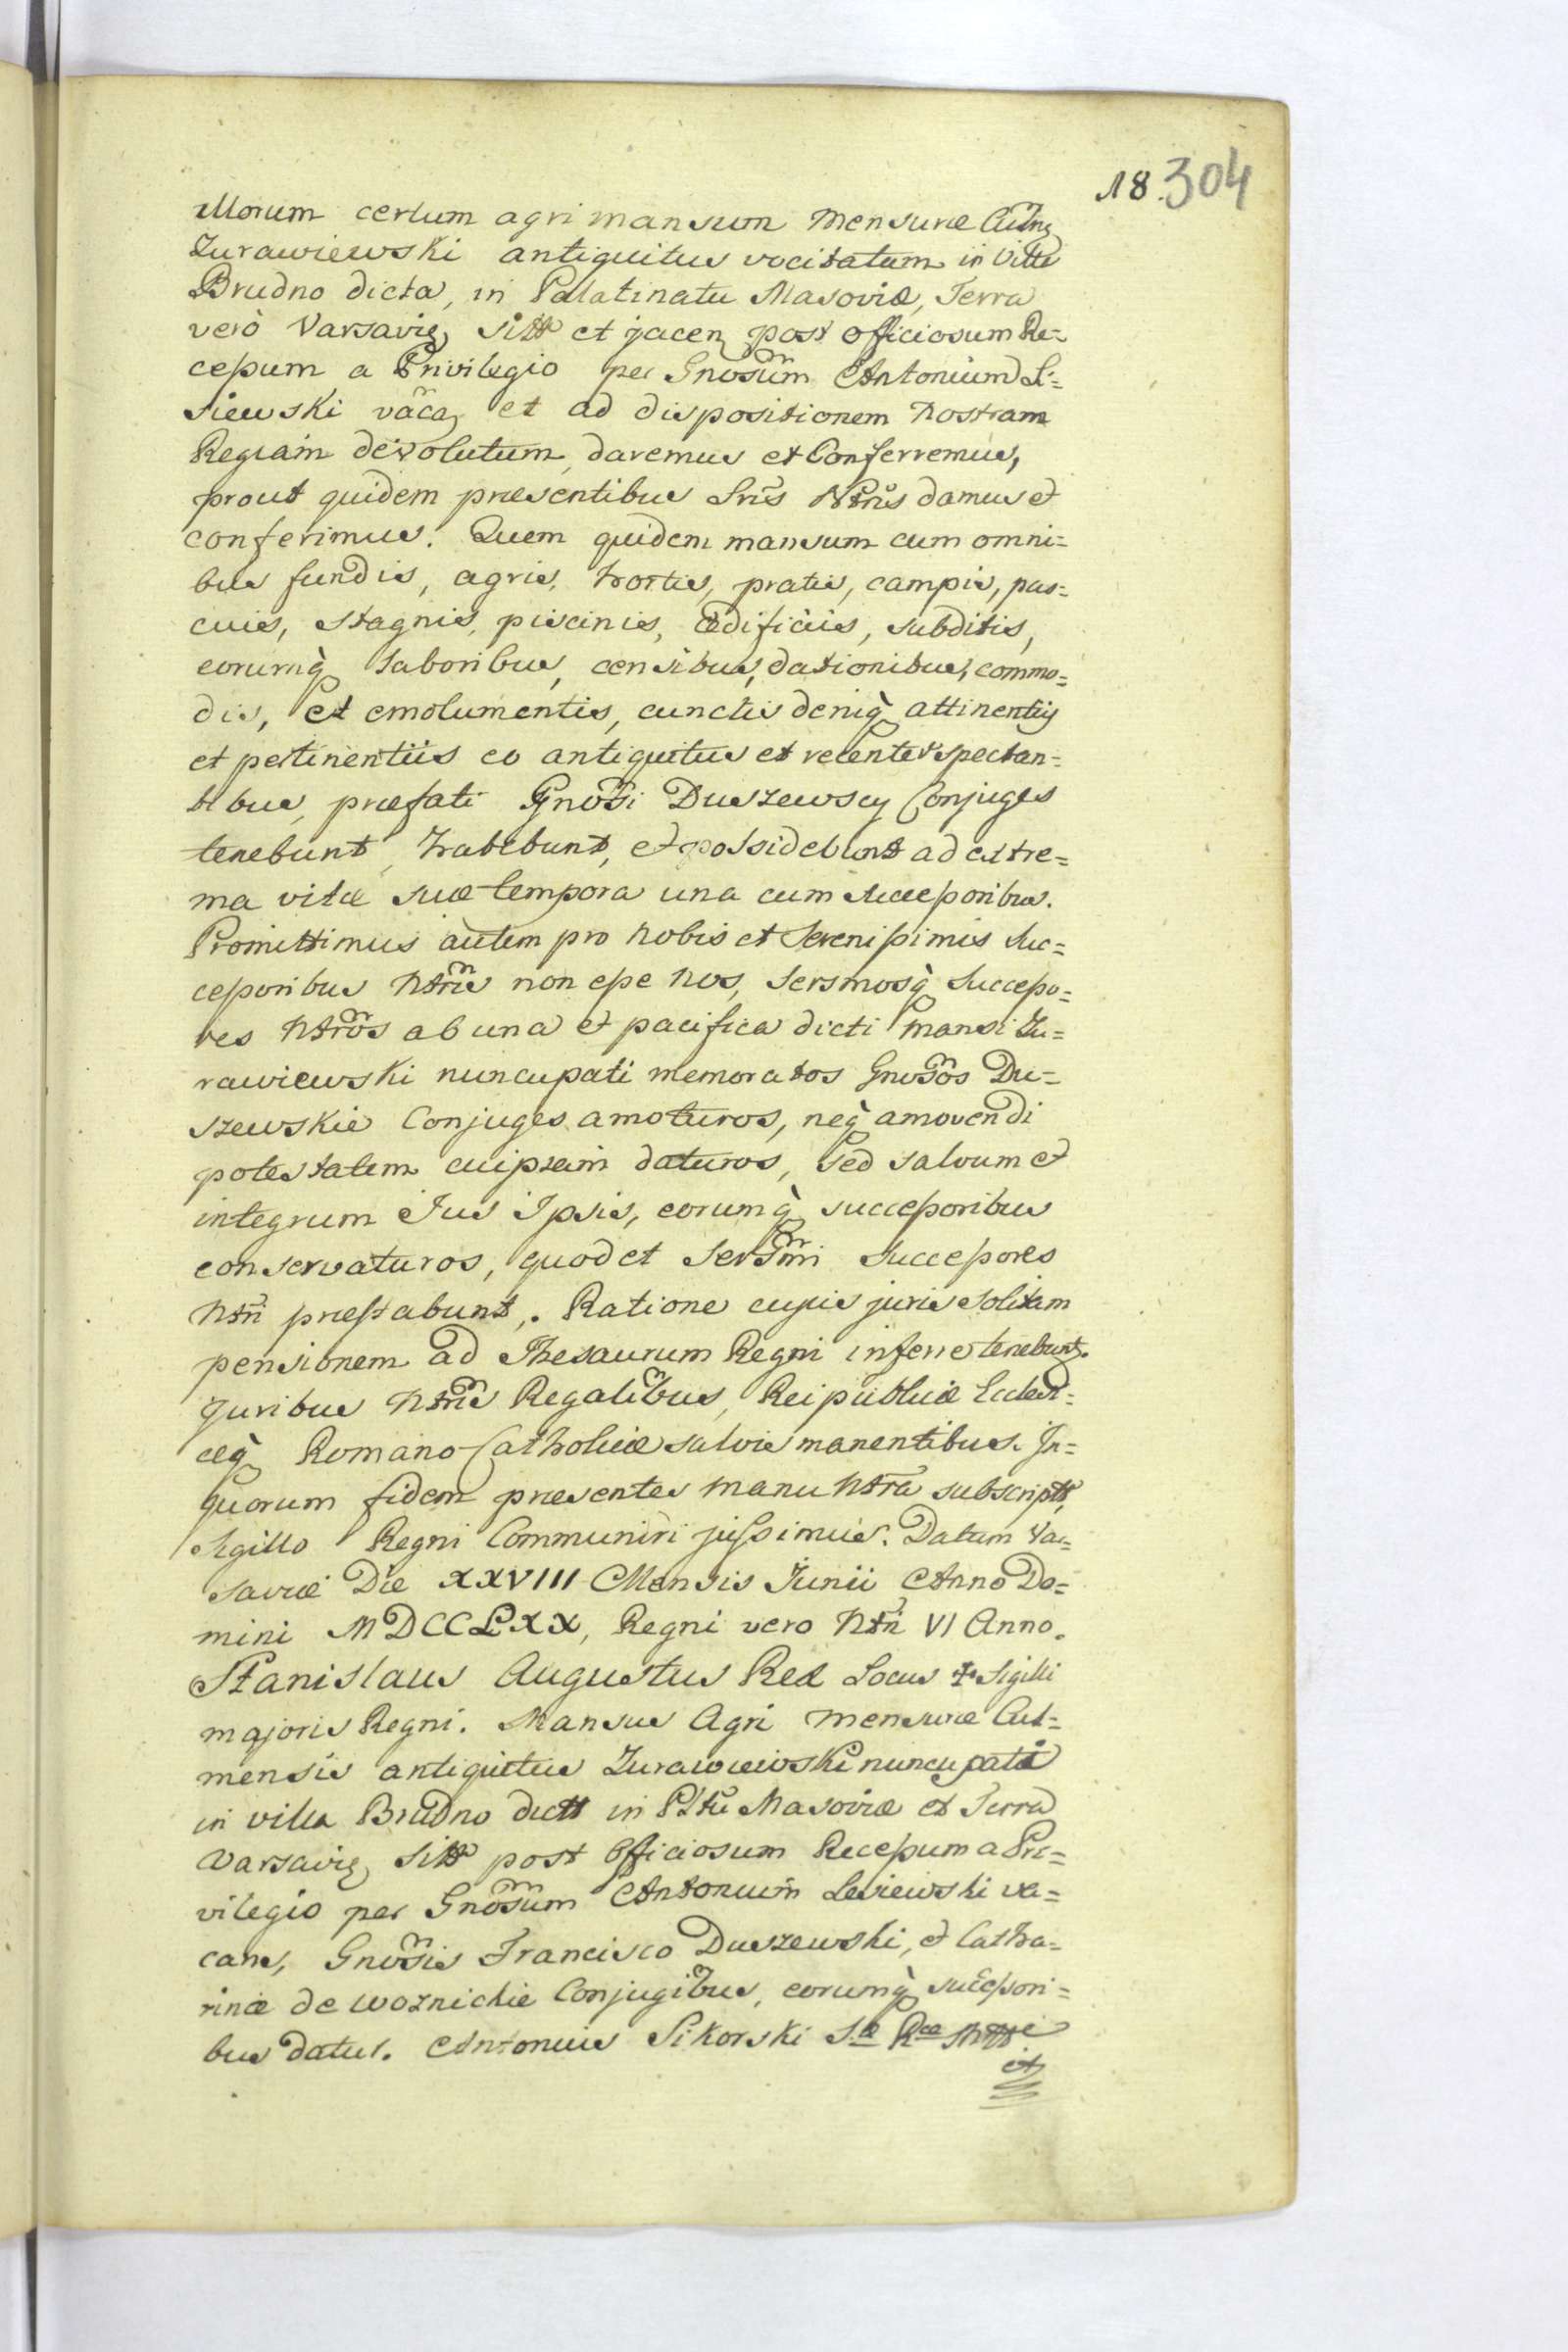 18. 304
illorum certum agri mansum mensuræ Culmz
Zurawiewski antiquitus vocitatum in Villa
Brudno dicta, in Palatinatu Masoviæ, Terra
verò Varsaviē, sitt et jacen, post officiosum Re=
cessum a Privilegio per Gnosum Antonium Li=
siewski vacā et ad dispositionem nostram
Regiam devolutum, daremus et Conferremus,
prout quidem præsentibus Lris Ntris damus et
conferimus. Quem quidem mansum cum omni=
bus fundis, agris, hortis, pratis, campis, pas=
cuis, stagnis, piscinis, ædificiis, subditis,
eorumq̀ laboribus, censibus, dationibus, commo=
dis, et emolumentis, cunctis deniq̀ attinentijs
et pertinentiis eo antiquitus et recenter spectan=
tibus, præfati Gnosi Duszewscy Conjuges
tenebunt, habebunt, et possidebunt ad extre=
ma vitæ suæ tempora una cum successoribus.
Promittimus autem pro nobis et Serenissimis Suc=
cessoribus Ntris non esse nos, Sersmosq̀ Successo=
res Ntros ab una et pacifica dicti mansi Zu=
rawiewski nuncupati memoratos Gnosos Du=
szewskie Conjuges amoturos, neq̀ amovendi
potestatem cuipiam daturos, sed salvum et
integrum Jus Ipsis, eorumq̀ successoribus
conservaturos, quod et Sersmi Successores
Ntri præstabunt. Ratione cujus juris solitam
pensionem ad Thesaurum Regni inferre tenebunt.
Juribus Ntris Regalibus, Reipublicæ Ecclesi=
æq̀ Romano Catholicæ salvis manentibus. In=
quorum fidem præsentes manu Ntra subscriptt,
Sigillo Regni Communiri jussimus. Datum Var=
saviæ Die XXVIII Mensis Junii Anno Do=
mini MDCCLXX, Regni vero Ntri VI Anno.
Stanislaus Augustus Rex Locus + Sigilli
majoris Regni. Mansus Agri mensuræ Cul=
mensis antiquitus Zurawiewski nuncupati
in villa Brudno dictt in Pltu Masoviæ et Terra
Varsaviē, sitt post officiosum Recessum a Pri=
vilegio per Gnosum Antonium Lisiewski va=
cans, Gnosis Francisco Duszewski, et Catha=
rinæ de Woznickie Conjugibus, eorumq̀ successori=
bus datur. Antonius Sikorski Sæ Ræ Mttis